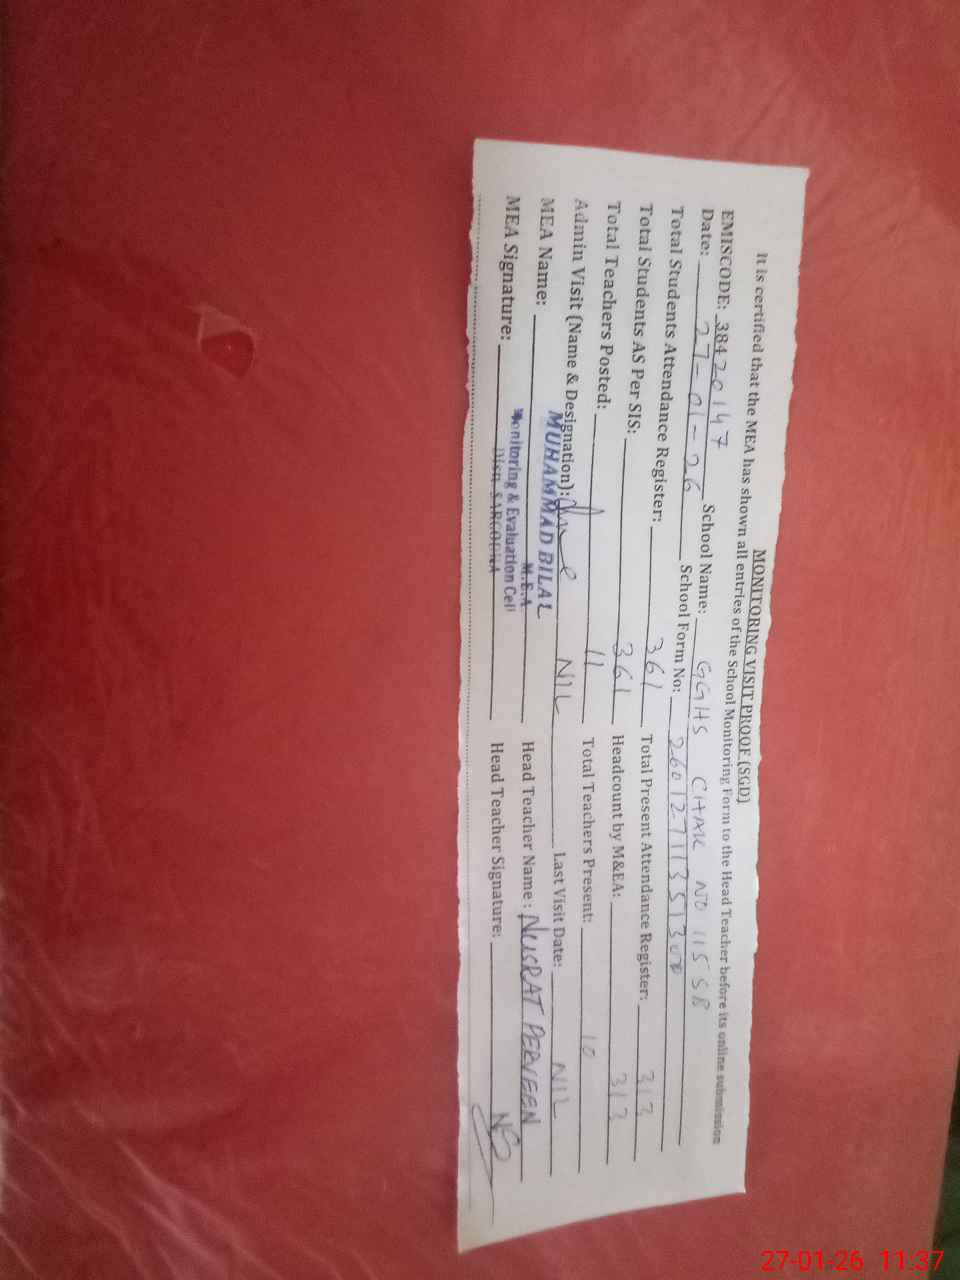 MONITORING VISIT PROOF (SGD)
It is certified that the MEA has shown all entries of the School Monitoring Form to the Head Teacher before its online submission
EMISCODE: 38420147 School Name: GGHS CHAK NO 115 SB
Date: 27-01-26 School Form No:
Total Students Attendance Register: 361 Total Present Attendance Register: 313
Total Students AS Per SIS: 361 Headcount by M&EA: 313
Total Teachers Posted: 11 Total Teachers Present: 10
Admin Visit (Name & Designation): NIL Last Visit Date: NIL
MEA Name: MUHAMMAD BILAL Head Teacher Name: NUSRAT PERVEEN
M.E.A
MEA Signature: Monitoring & Evaluation Cell Head Teacher Signature: NS
Distt. SARGODHA
27-01-26 11:37